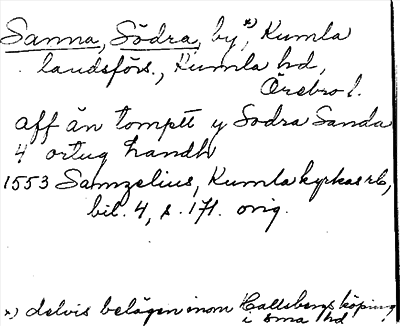 Sanna, Södra, by,*) Kumla
landsförs., Kumla hd,
Örebro l.
aff än tomptt y Sodra Sanda
4 ortug handh
1553 Samzelius, Kumla kyrkas rb,
bil. 4, s. 171. orig.
*) delvis belägen inom Hallsbergs köping
i sma hd